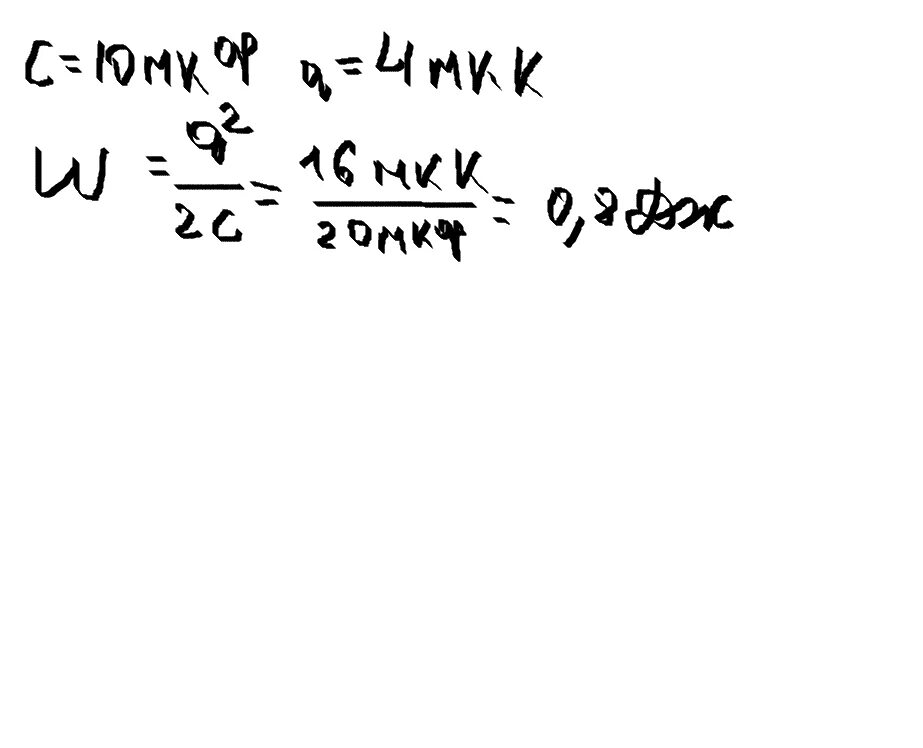 C = 10 мкФ q = 4 мкК
W = q²/2C = 16 мкК/20 мкФ = 0,8 Дж